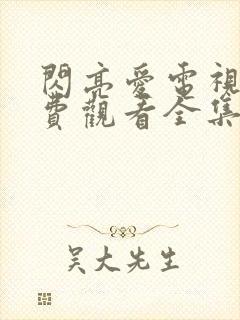 閃亮愛電視
費觀看全集
吴大先生